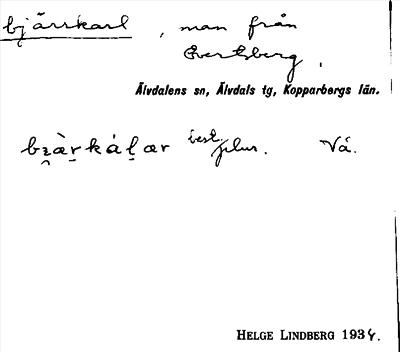 bjärrkarl, man från
Evertsberg,
Älvdalens sn, Älvdals tg, Kopparbergs län.
bʐæ̀r̠kál̠ær best. plur. Vå.
HELGE LINDBERG 1934.